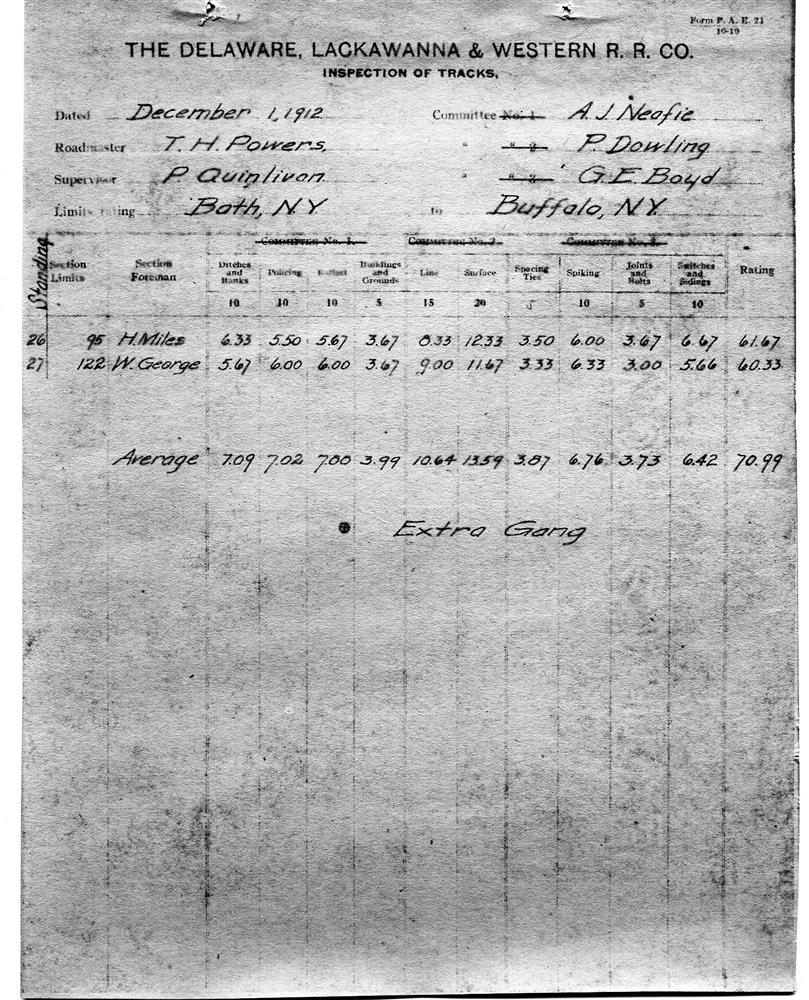 Form P. A. E. 21
10-10
THE DELAWARE, LACKAWANNA & WESTERN R. R. CO.
INSPECTION OF TRACKS.
Dated December 1, 1912 Committee No. 1 A. J. Neafie
Roadmaster T. H. Powers, " " 2 P. Dowling
Supervisor P. Quinlivan " " 3 G. E. Boyd
Limits rating Bath, N.Y. to Buffalo, N.Y.
COMMITTEE No. 1. COMMITTEE No. 2. COMMITTEE No. 3.
Standing Section Limits Section Foreman Ditches and Banks Policing Ballast Buildings and Grounds Line Surface Spacing Ties Spiking Joints and Bolts Switches and Sidings Rating
10 10 10 5 15 20 5 10 5 10
26 95 H. Miles 6.33 5.50 5.67 3.67 8.33 12.33 3.50 6.00 3.67 6.67 61.67
27 122 W. George 5.67 6.00 6.00 3.67 9.00 11.67 3.33 6.33 3.00 5.66 60.33
Average 7.09 7.02 7.00 3.99 10.64 13.59 3.87 6.76 3.73 6.42 70.99
Extra Gang